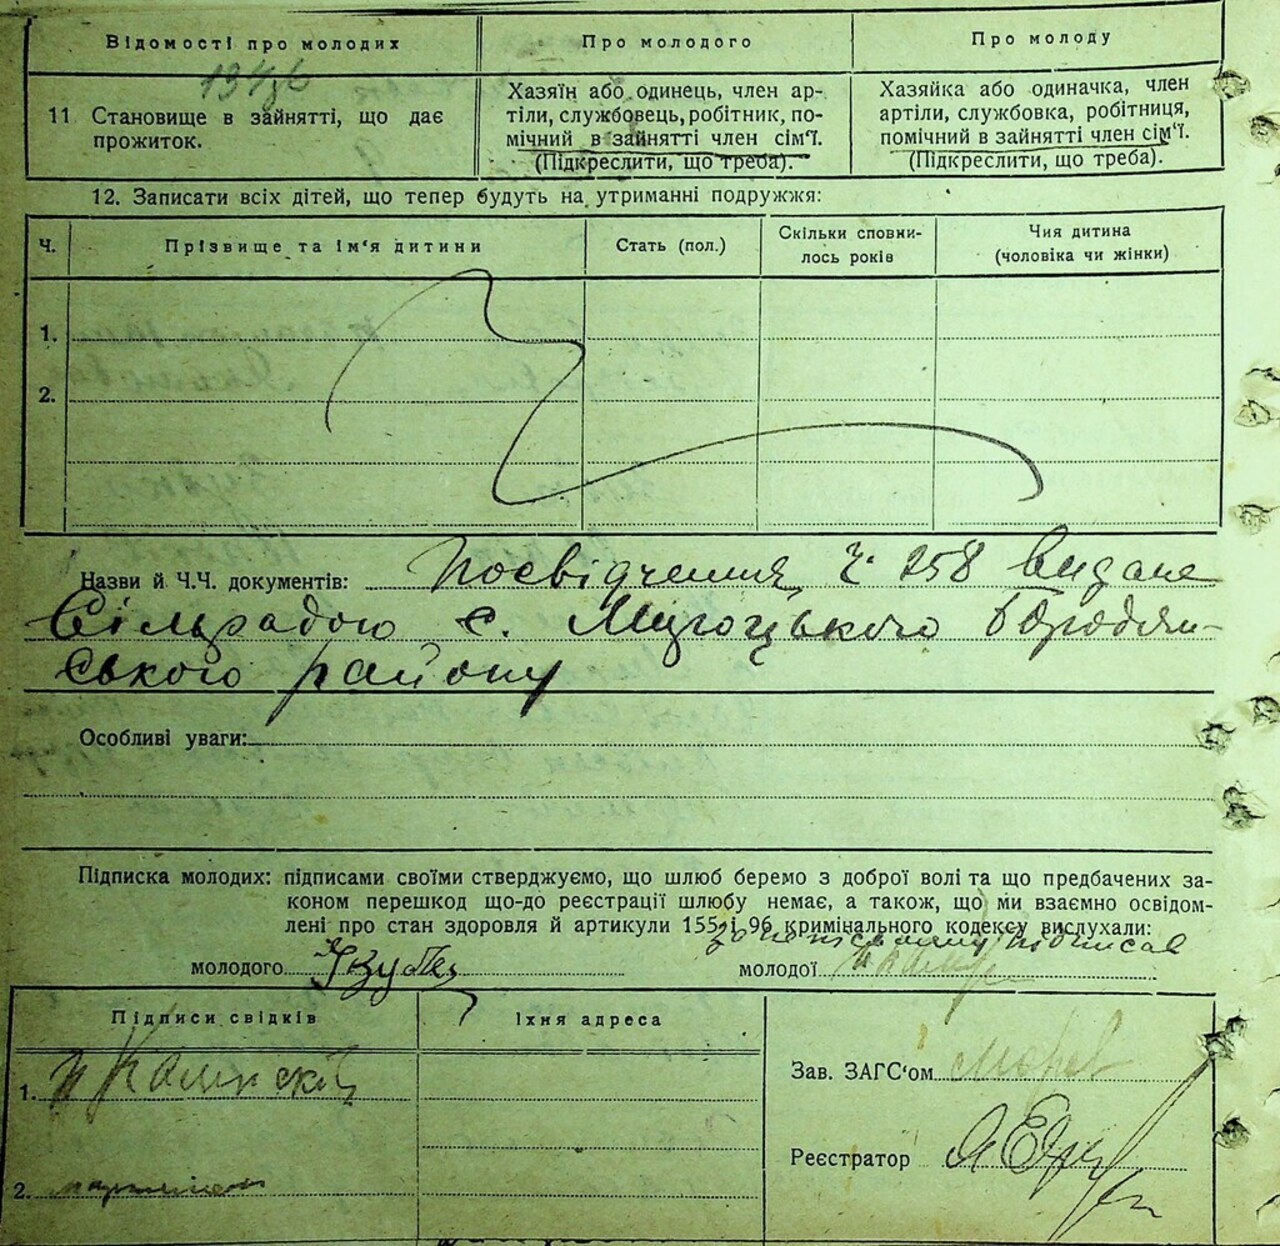 Відомості про молодих
Про молодого
Про молоду
11 Становище в зайнятті, що дає
прожиток.
Хазяїн або одинець, член ар-
тіли, службовець, робітник, по-
мічний в зайнятті член сім'ї.
(Підкреслити, що треба).
Хазяйка або одиначка, член
артіли, службовка, робітниця,
помічний в зайнятті член сім'ї.
(Підкреслити, що треба).
12. Записати всіх дітей, що тепер будуть на утриманні подружжя:
Ч.
Прізвище та ім'я дитини
Стать (пол.)
Скільки сповни-
лось років
Чия дитина
(чоловіка чи жінки)
1.
2.
Назви й Ч.Ч. документів: Посвідчення ч. 258 видане
Сільрадою с. Бородян-
ського району
Особливі уваги:
Підписка молодих: підписами своїми стверджуємо, що шлюб беремо з доброї волі та що предбачених за-
коном перешкод що-до реєстрації шлюбу немає, а також, що ми взаємно освідом-
лені про стан здоровля й артикули 155 і 96 кримінального кодексу вислухали:
за неписьменну підписав
молодого
молодої
Підписи свідків
Їхня адреса
1.
2.
Зав. ЗАГС'ом
Реєстратор